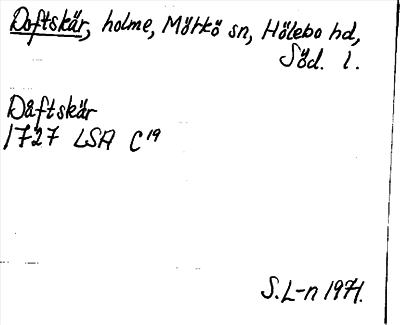 Doftskär, holme, Mörkö sn, Hölebo hd,
Söd. l.
Dåftskär
1727 LSA C¹⁹
S. L-n 1971.